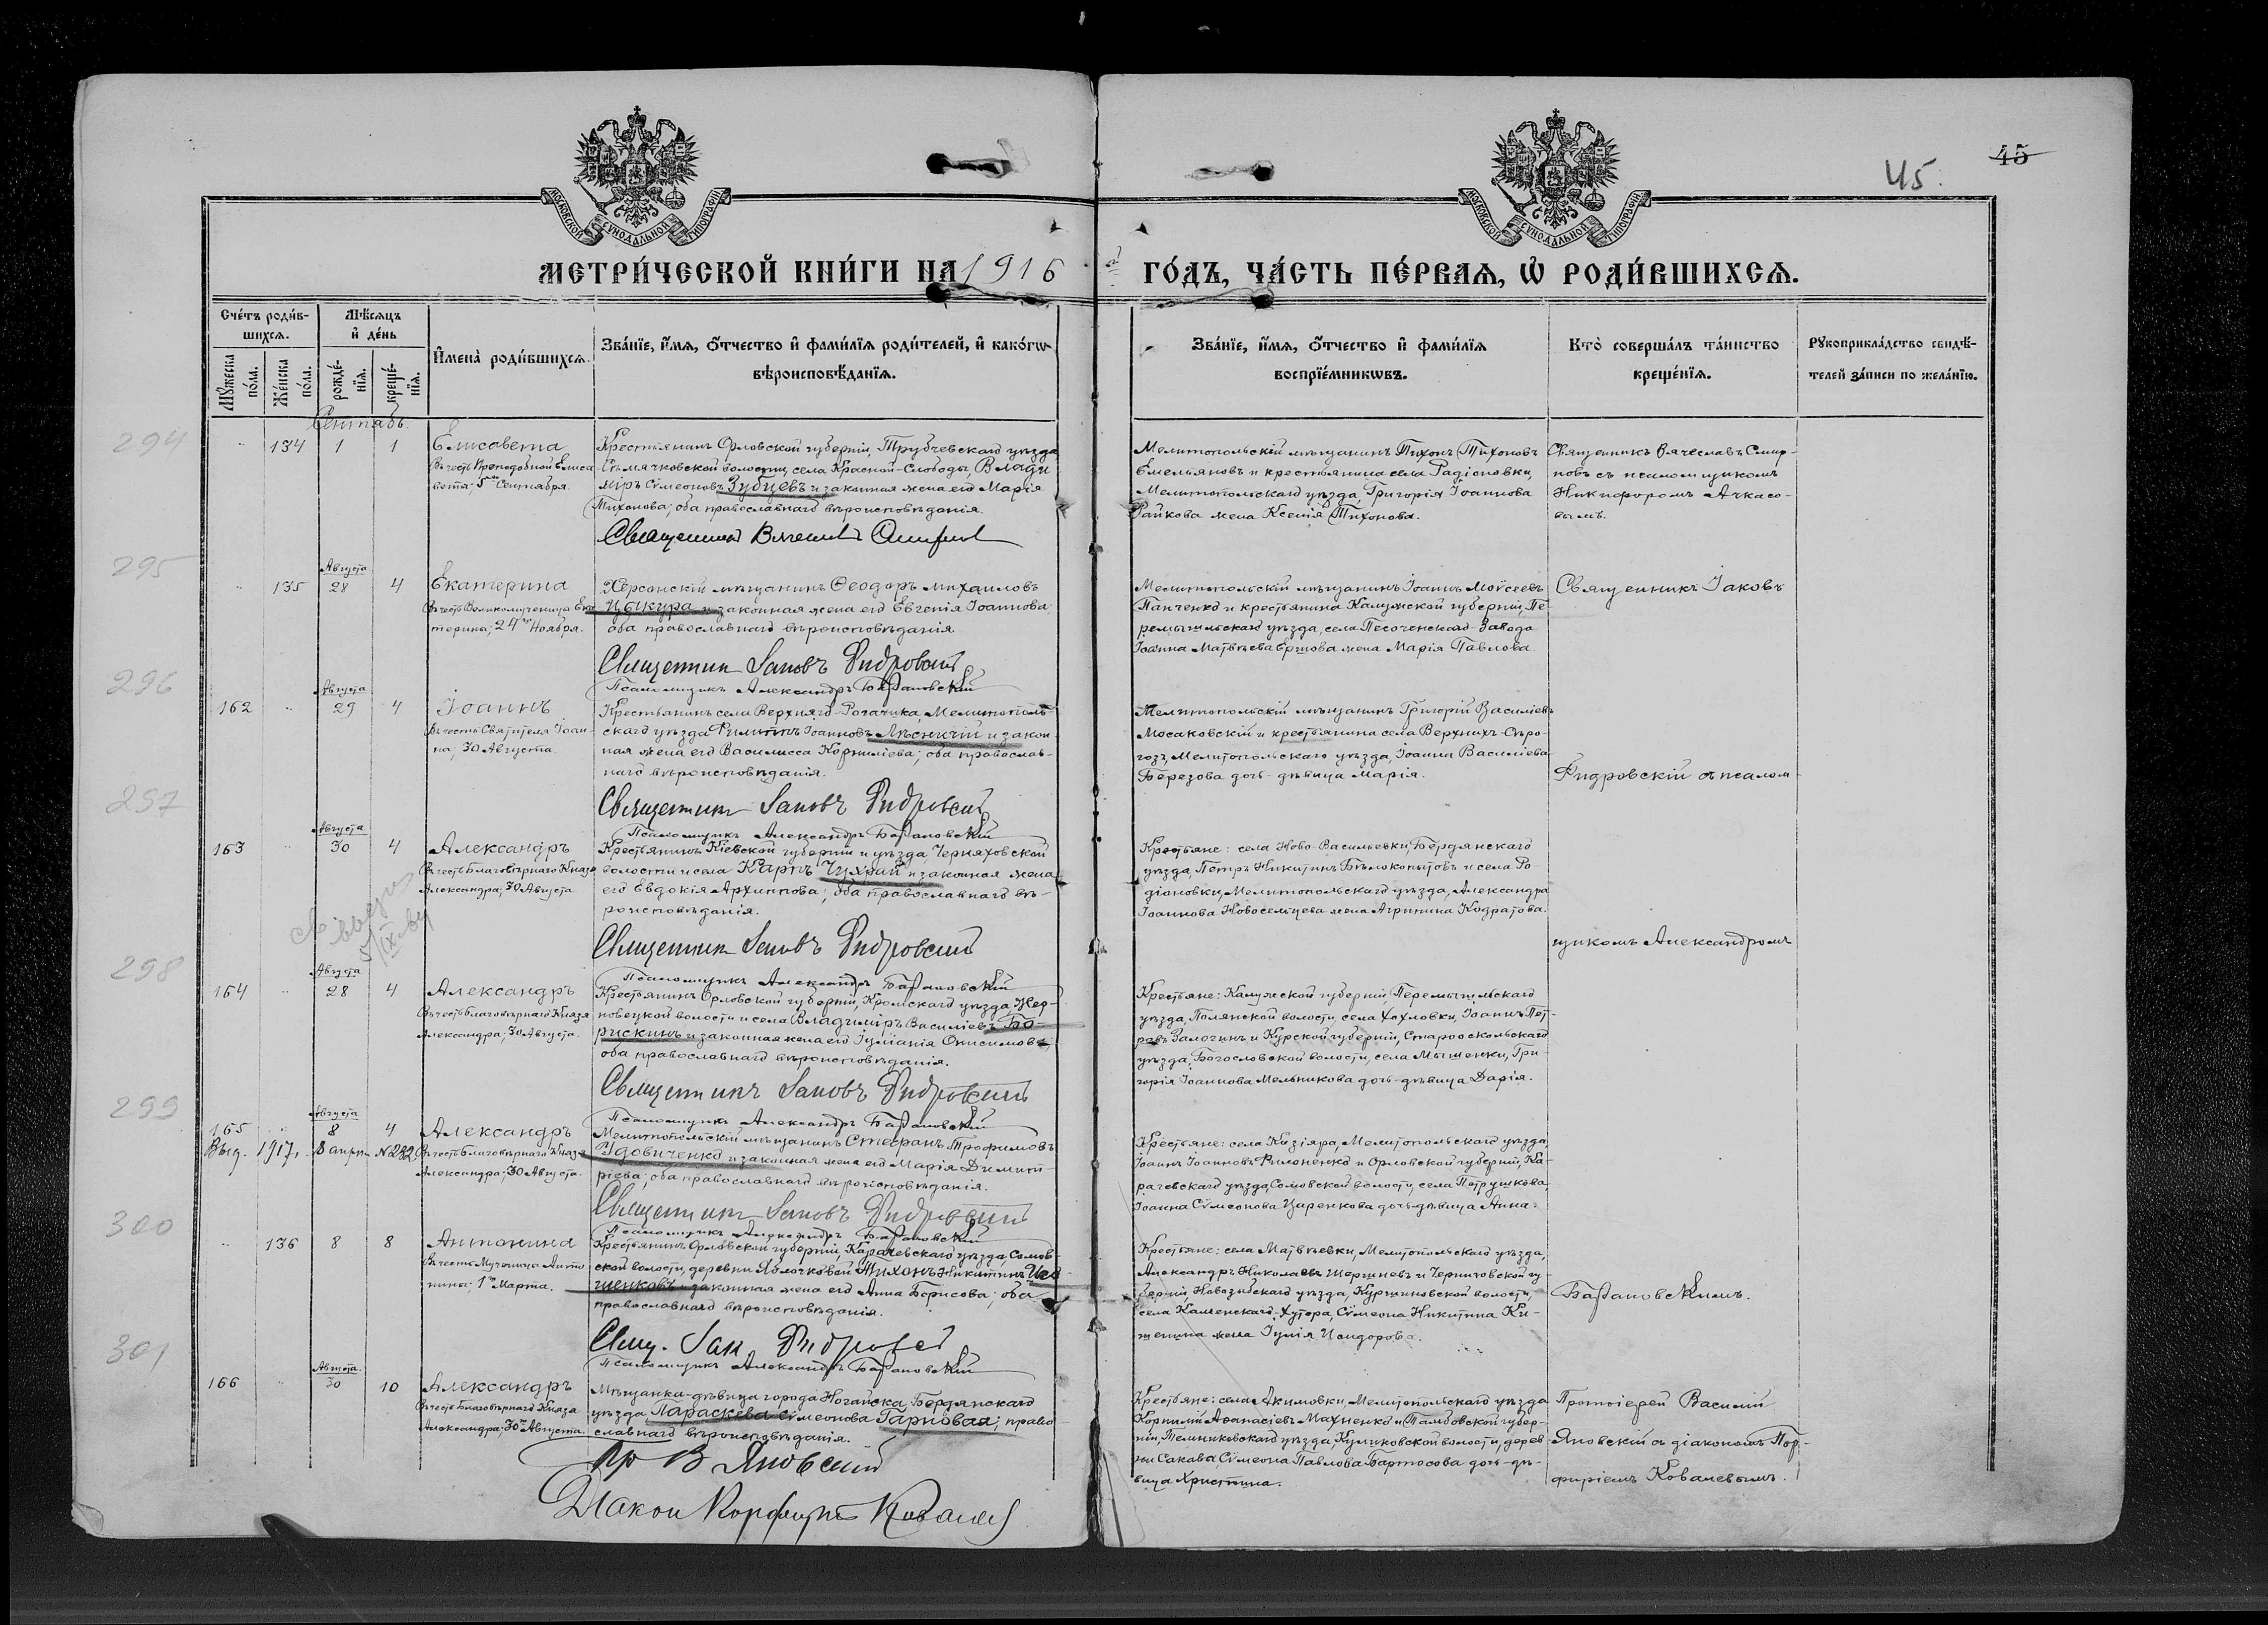 МОСКОВСКОЙ СУНОДАЛЬНОЙ ТИПОГРАФІИ
МОСКОВСКОЙ СУНОДАЛЬНОЙ ТИПОГРАФІИ
45
45.
МЕТРИ́ЧЕСКОЙ КНИ́ГИ НА 1916
ГО́ДЪ, ЧА́СТЬ ПЕ́РВАѦ, Ѡ РОДИ́ВШИХСѦ.
Сче́тъ роди́в-
шихсѧ.
Мꙋ́жеска по́ла.
Же́нска по́ла.
Мѣ́сѧцъ
и҆ де́нь
рожде́-
нїѧ.
креще́-
нїѧ.
И҆мена̀ роди́вшихсѧ.
Зва́нїе, и҆́мѧ, ѻ҆́тчество и҆ фами́лїѧ роди́телей, и҆ како́гѡ
вѣроисповѣ́данїѧ.
Зва́нїе, и҆́мѧ, ѻ҆́тчество и҆ фами́лїѧ
воспрїе́мникѡвъ.
Кто̀ соверша́лъ та́инство
креще́нїѧ.
Рꙋкоприкла́дство свидѣ́-
телей за́писи по жела́нїю.
Сентябъ.
294
134 1 1
Елисавета
Въ честь Преподобной Елиса
веты; 5го Сентября.
Крестьянинъ Орловской губерніи, Трубчевскаго уѣзда
волости, села Красной-Слободы, Влади
міръ Сѵмеоновъ Зубцевъ и законная жена его Марія
Тихонова; оба православнаго вѣроисповѣданія.
Священникъ Вячеславъ Смирнов
Мелитопольскій мѣщанинъ Тихонъ Тихоновъ
Емельяновъ и крестьянина села Радіоновки,
Мелитопольскаго уѣзда, Григорія Іоаннова
Райкова жена Ксенія Тихонова.
Священникъ Вячеславъ Смир-
новъ съ псаломщикомъ
Никифоромъ Ачкасо-
вымъ.
295
135
Августа
28 4
Екатерина
Въ честь Великомученицы Ека
терины; 24го Ноября.
Херсонскій мѣщанинъ Ѳеодоръ Михаиловъ
Цыкура и законная жена его Евгенія Іоаннова
оба православнаго вѣроисповѣданія.
Священникъ Іаковъ Фидровскій
Псаломщикъ Александръ Баѳановскій
Мелитопольскій мѣщанинъ Іоаннъ Моѵсеевъ
Панченко и крестьянина Калужской губерніи, Пе-
ремышльскаго уѣзда, села Песоченскаго-Завода
Іоанна Матвѣева Ершова жена Марія Павлова.
Священникъ Іаковъ
296
162
Августа
29 4
Іоаннъ
Въ честь Святителя Іоан-
на; 30 Августа.
Крестьянинъ села Верхняго-Рогачика, Мелитополь
скаго уѣзда Филиппъ Іоанновъ Лѣсничій и закон-
ная жена его Василисса Корниліева; оба православ-
наго вѣроисповѣданія.
Священникъ Іаковъ Фидровскій
Псаломщикъ Александръ Баѳановскій
Мелитопольскій мѣщанинъ Григорій Василіевъ
Мосаковскій и крестьянина села Верхнихъ-Сѣро-
гозъ, Мелитопольскаго уѣзда, Іоанна Василіева
Березова дочь-дѣвица Марія.
Фидровскій съ псалом-
297
163
Августа
30 4
Александръ
Въ честь Благовѣрнаго Князя
Александра; 30 Августа
Крестьянинъ Кіевской губерніи и уѣзда, Черняховской
волости и села Карпъ Чухрай и законная жена
его Евдокія Архиппова; оба православнаго вѣ-
роисповѣданія.
Священникъ Іаковъ Фидровскій
Псаломщикъ Александръ Баѳановскій
Крестьяне: села Ново-Васильевки, Бердянскаго
уѣзда, Петръ Никитинъ Бѣлокопытовъ и села Ро-
діоновки, Мелитопольскаго уѣзда, Александра
Іоаннова Новосельцева жена Агрипина Кодратова.
щикомъ Александромъ
298
164
Августа
28 4
Александръ
Въ честь Благовѣрнаго Князя
Александра; 30 Августа.
Крестьянинъ Орловской губерніи, Кромскаго уѣзда, Жер-
новецкой волости и села Владиміръ Василіевъ Бо-
рискинъ и законная жена его Іуліанія Онисимова;
оба православнаго вѣроисповѣданія.
Священникъ Іаковъ Фидровскій
Псаломщикъ Александръ Баѳановскій
Крестьяне: Калужской губерніи, Перемышльскаго
уѣзда, Полянской волости, села Хохловки, Іоаннъ Пет-
ровъ Залогинъ и Курской губерніи, Старооскольскаго
уѣзда, Богословской волости, села Мышенки, Гри-
горія Іоаннова Мельникова дочь-дѣвица Дарія.
299
165
Августа
8 4
Выд. 1917 г. 8 апр. №282.
Александръ
Въ честь Благовѣрнаго Князя
Александра; 30 Августа.
Мелитопольскій мѣщанинъ Стефанъ Трофимовъ
Удовиченко и законная жена его Марія Димит
ріева; оба православнаго вѣроисповѣданія.
Священникъ Іаковъ Фидровскій
Псаломщикъ Александръ Баѳановскій
Крестьяне: села Кизіяра, Мелитопольскаго уѣзда,
Іоаннъ Іоанновъ Филоненко и Орловской губерніи, Ка-
рачевскаго уѣзда, Сомовской волости, села Петрушкова,
Іоанна Сѵмеонова Циренкова дочь-дѣвица Анна.
300
136 8 8
Антонина
Въ честь Мученицы Анто
нины; 1го Марта.
Крестьянинъ Орловской губерніи, Карачевскаго уѣзда, Сомов-
ской волости, деревни Яблочковой Тихонъ Никитинъ
законная жена его Анна Борисова; оба
православнаго вѣроисповѣданія.
Свящ. Іак. Фидровскій
Псаломщикъ Александръ Баѳановскій
Крестьяне: села Матвѣевки, Мелитопольскаго уѣзда,
Александръ Николаевъ Шершневъ и Черниговской гу-
берніи, Новозыбскаго уѣзда, Куршиновской волости,
села Каменскаго-Хутора, Сѵмеона Никитина Ки-
жена Іулія Исидорова.
Баѳановскимъ.
301
166
Августа
30 10
Александръ
Въ честь Благовѣрнаго Князя
Александра; 30го Августа.
Мѣщанка-дѣвица города Ногайска, Бердянскаго
уѣзда, Параскева Сѵмеонова Гарповая; право-
славнаго вѣроисповѣданія.
Пр В Яновскій
Діаконъ Порфирій Ковалев
Крестьяне: села Акимовки, Мелитопольскаго уѣзда
Корнилій Аѳанасіевъ Махненко и Тамбовской губер-
ніи, Темниковскаго уѣзда, Куликовской волости, дерев
ни Сакова Сѵмеона Павлова Бартосова дочь-дѣ-
вица Христина.
Протоіерей Василій
Яновскій съ діакономъ Пор-
фиріемъ Ковалевымъ.